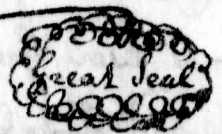 Great Seal